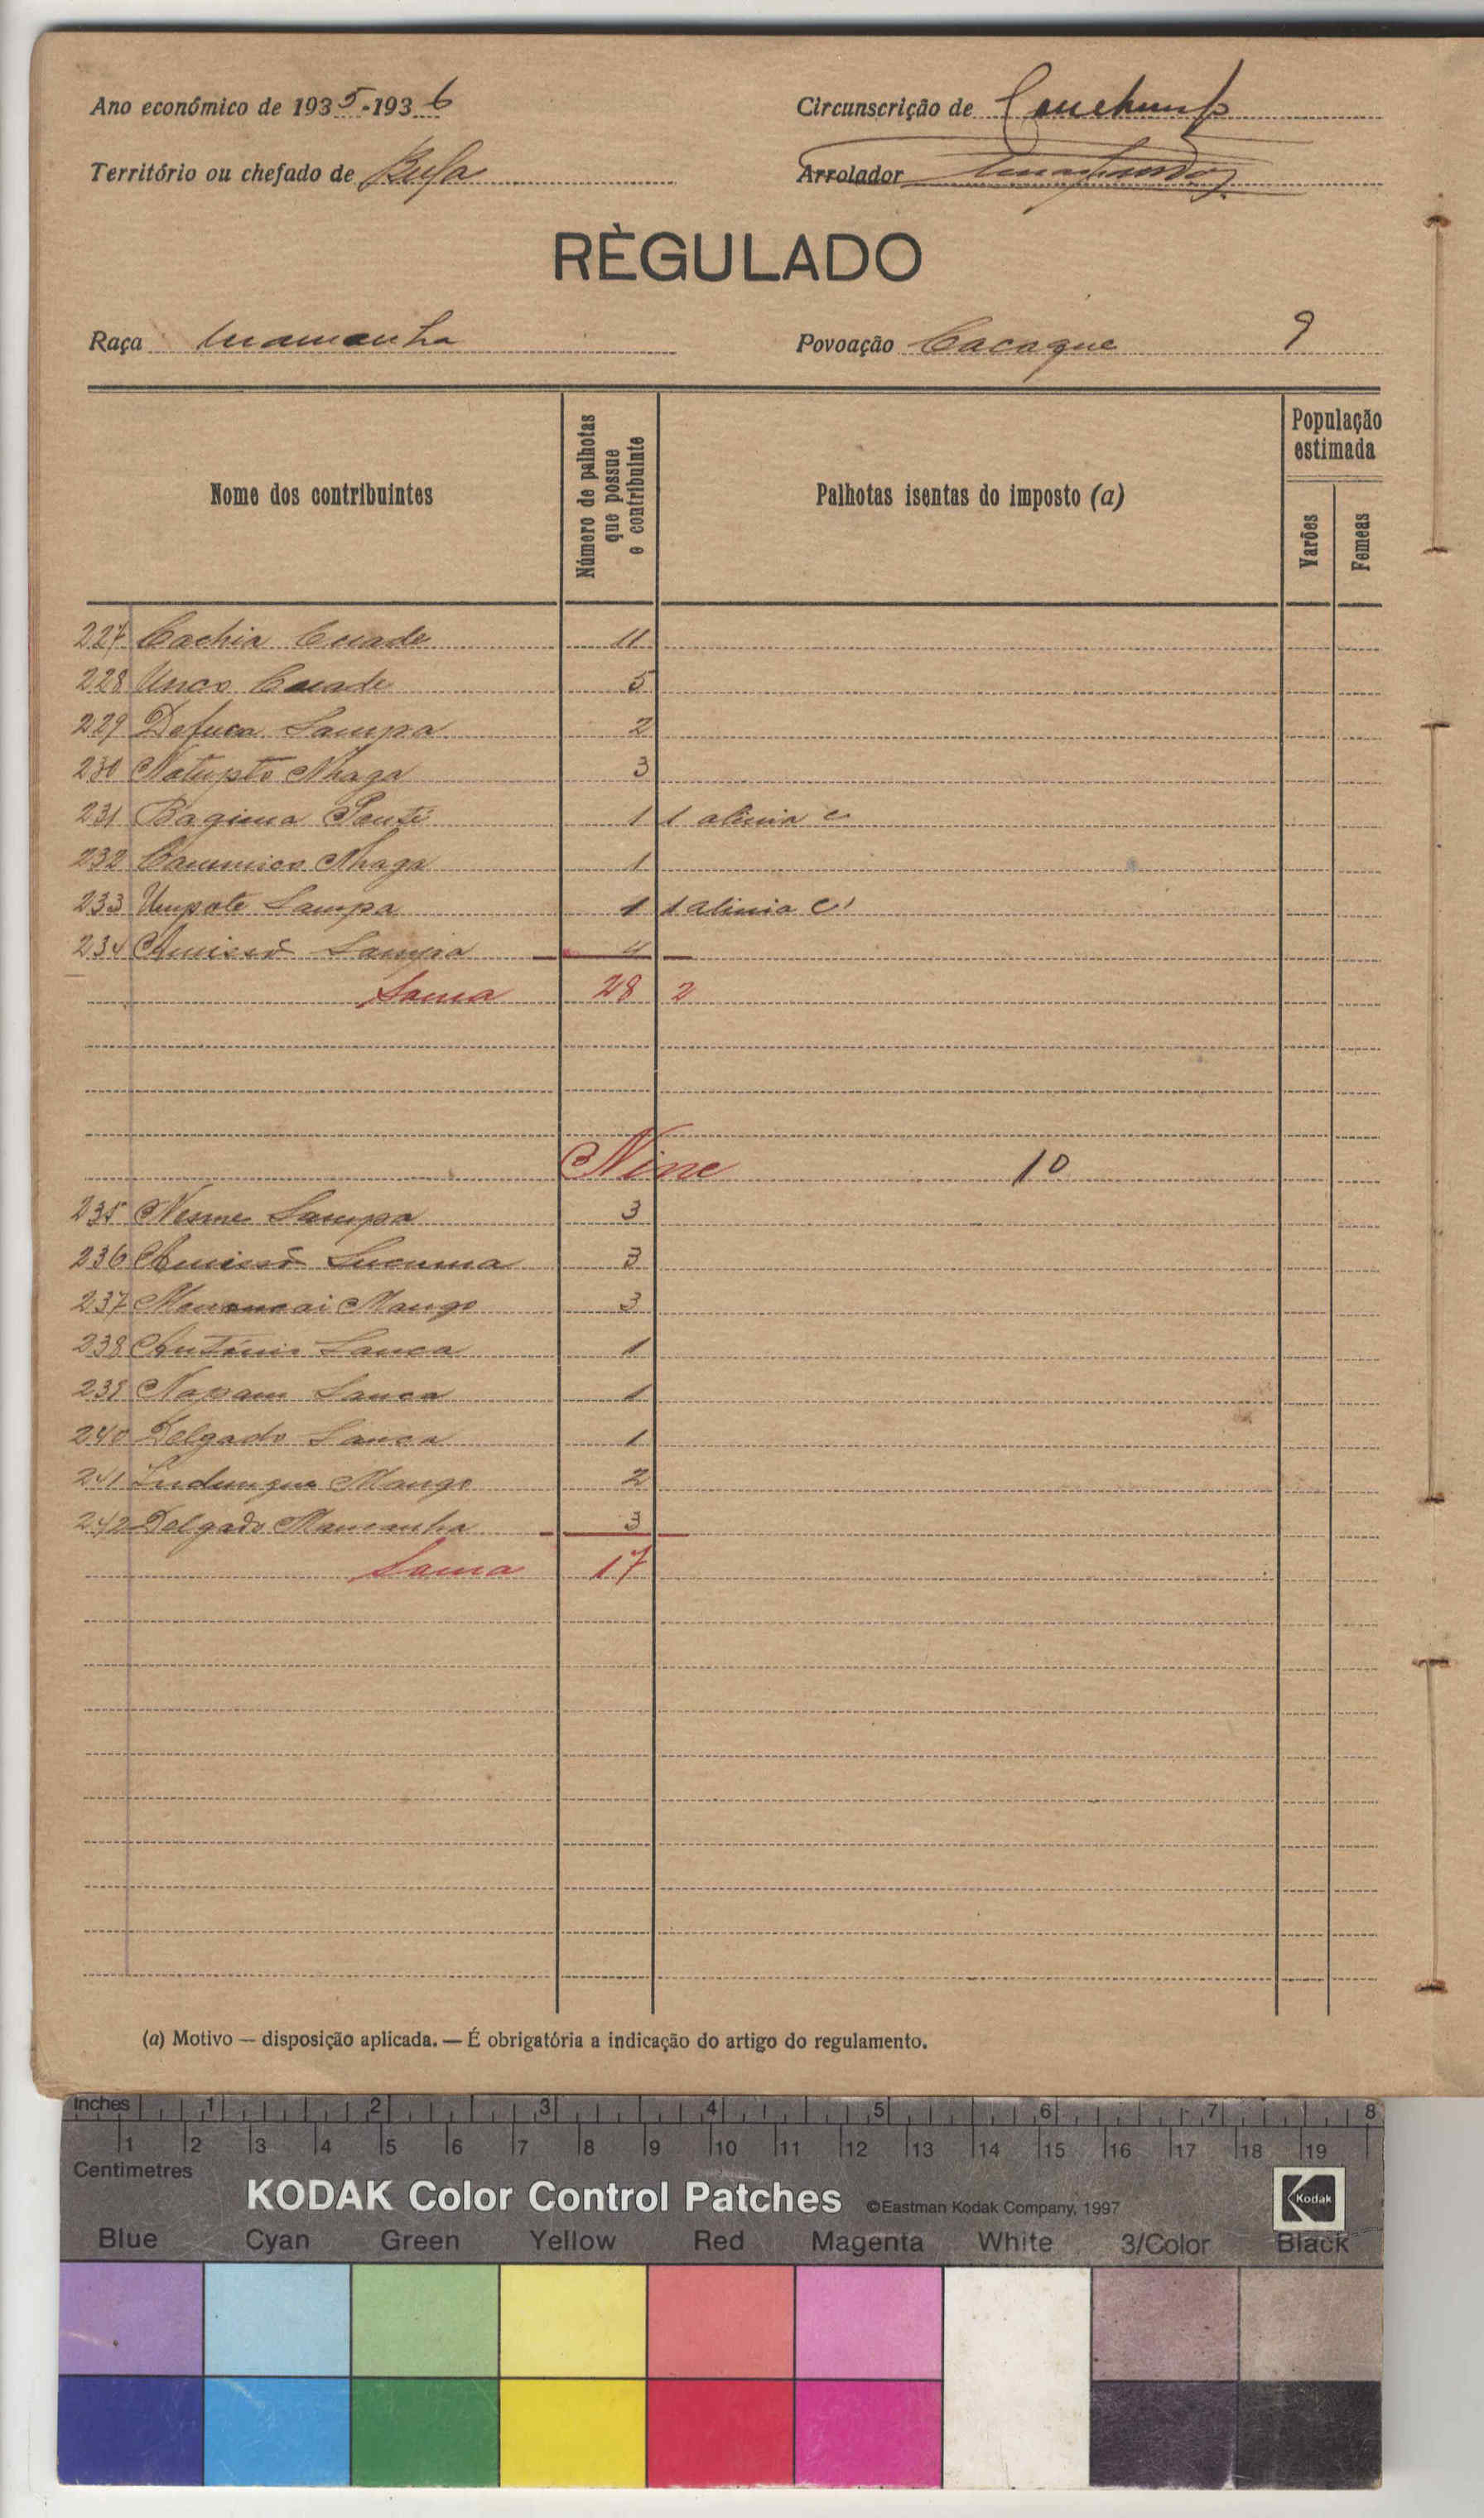 Ano económico de 1935-1936
Circunscrição de
Território ou chefado de Bula
Arrolador
RÈGULADO
Raça Mamanha
Povoação Cacaque 9
Nome dos contribuintes
Número de palhotas que possue o contribuinte
Palhotas isentas do imposto (a)
População estimada
Varões
Femeas
227 Cachia Cuade 11
228 Unco Cuade 5
229 Defuca Sampa 2
230 Natupto Nhaga 3
231 Bagina 1 1 alinia c
232 Nhaga 1
233 Umpote Sampa 1 1 alinia c
234 Sampa 4
Soma 28 2
Nine 10
235 Nesme Sampa 3
236 3
237 Mango 3
238 António Sanca 1
239 Napam Sanca 1
240 Delgado Sanca 1
241 Indungue Mango 2
242 Delgado Mancanha 3
Soma 17
(a) Motivo — disposição aplicada. — É obrigatória a indicação do artigo do regulamento.
Inches 1 2 3 4 5 6 7 8
1 2 3 4 5 6 7 8 9 10 11 12 13 14 15 16 17 18 19
Centimetres
KODAK Color Control Patches ©Eastman Kodak Company, 1997
Kodak
Blue Cyan Green Yellow Red Magenta White 3/Color Black